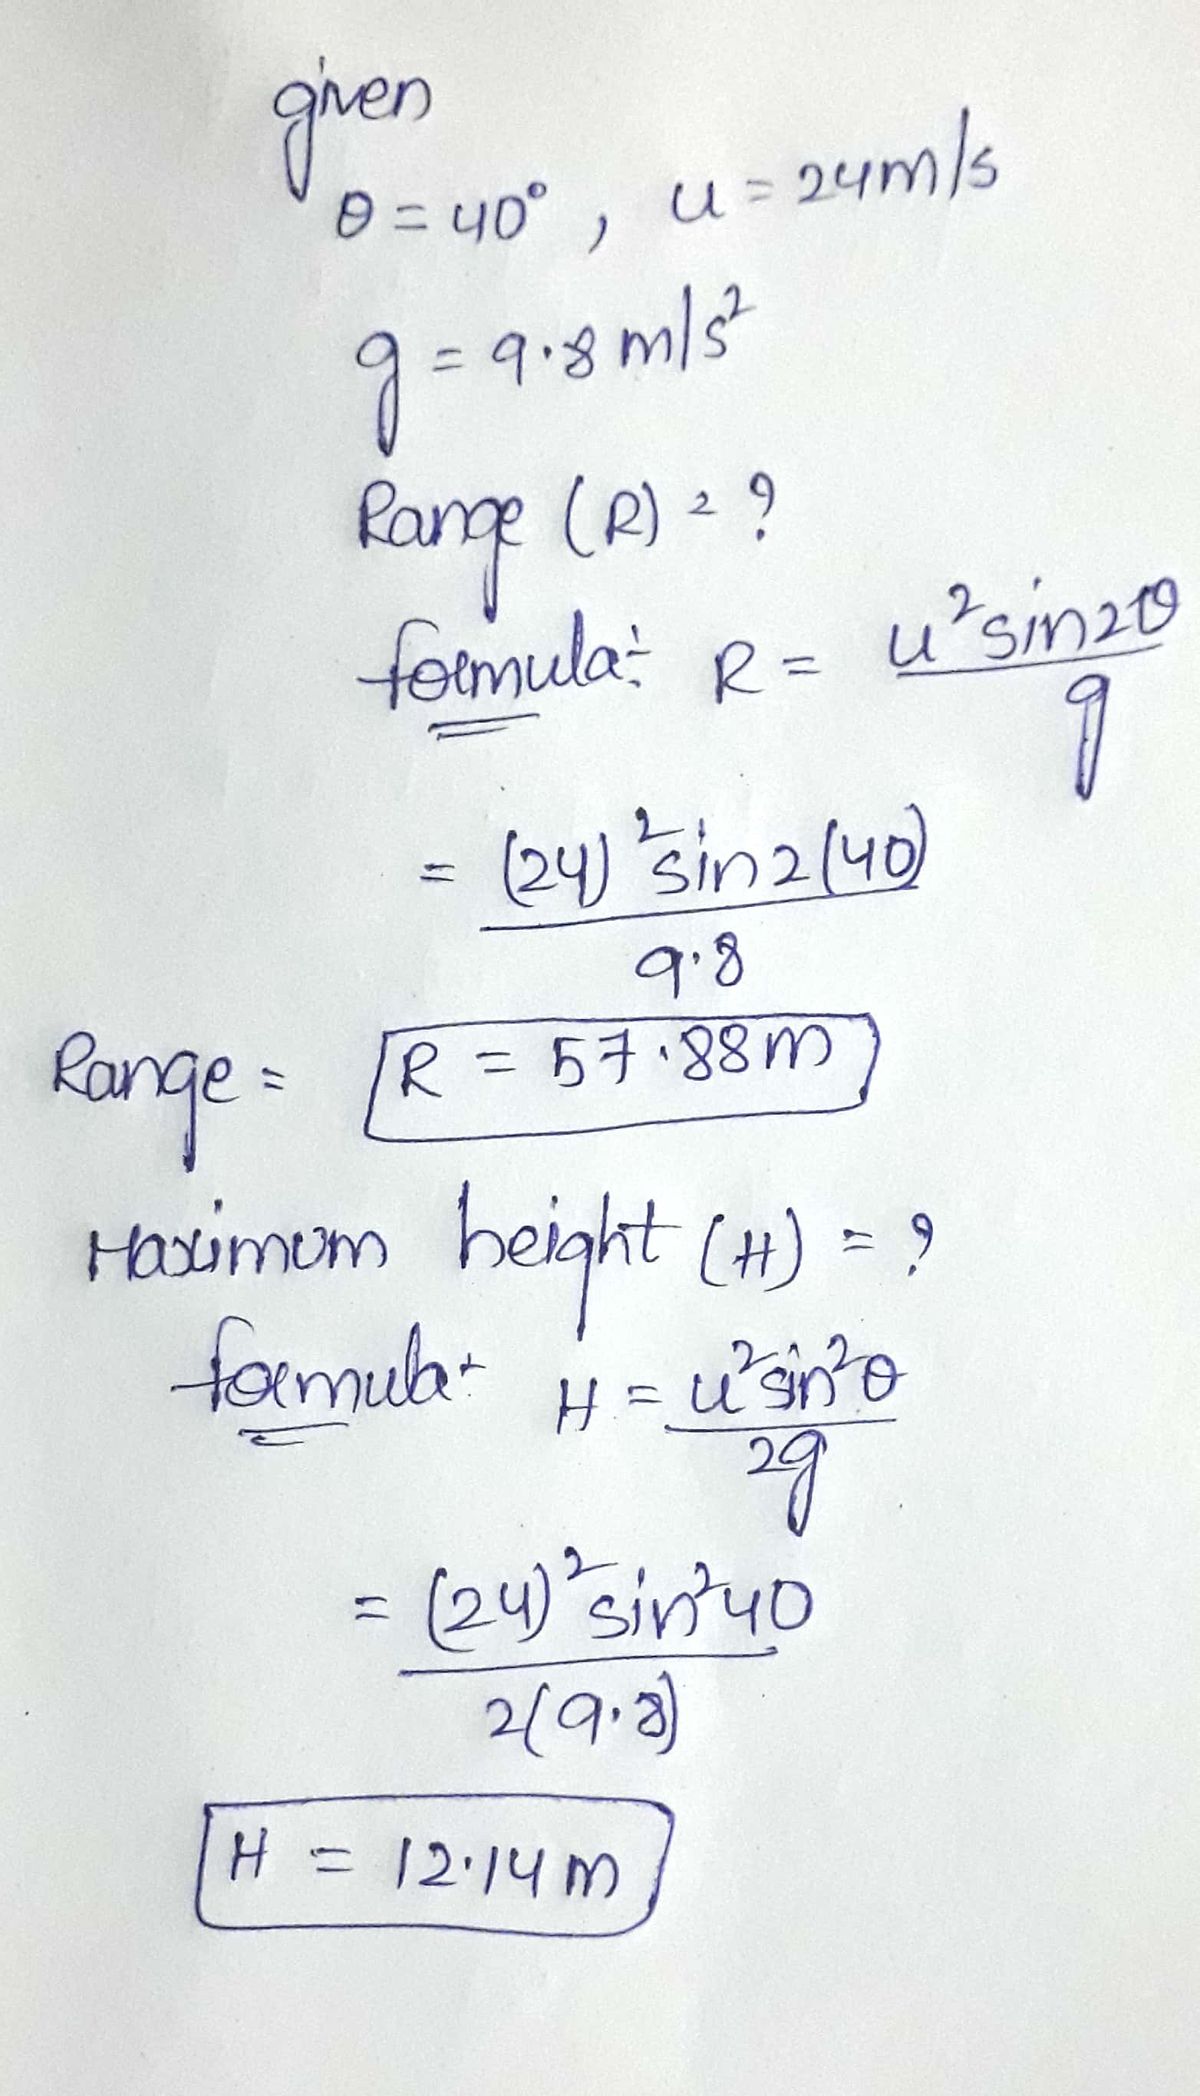 given
θ = 40° , u = 24m/s
g = 9.8 m/s²
Range (R) = ?
formula: R = u² sin2θ / g
= (24)² sin2(40) / 9.8
Range = R = 57.88m
Maximum height (H) = ?
formula: H = u² sin²θ / 2g
= (24)² sin²40 / 2(9.8)
H = 12.14 m